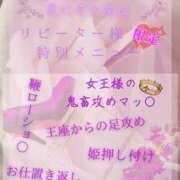 リピーター様
限定
特別メニ
女王様の
鬼畜攻めマッ〇
鞭ローショ〇
王座からの足攻め
姫押し付け
お仕置き返し